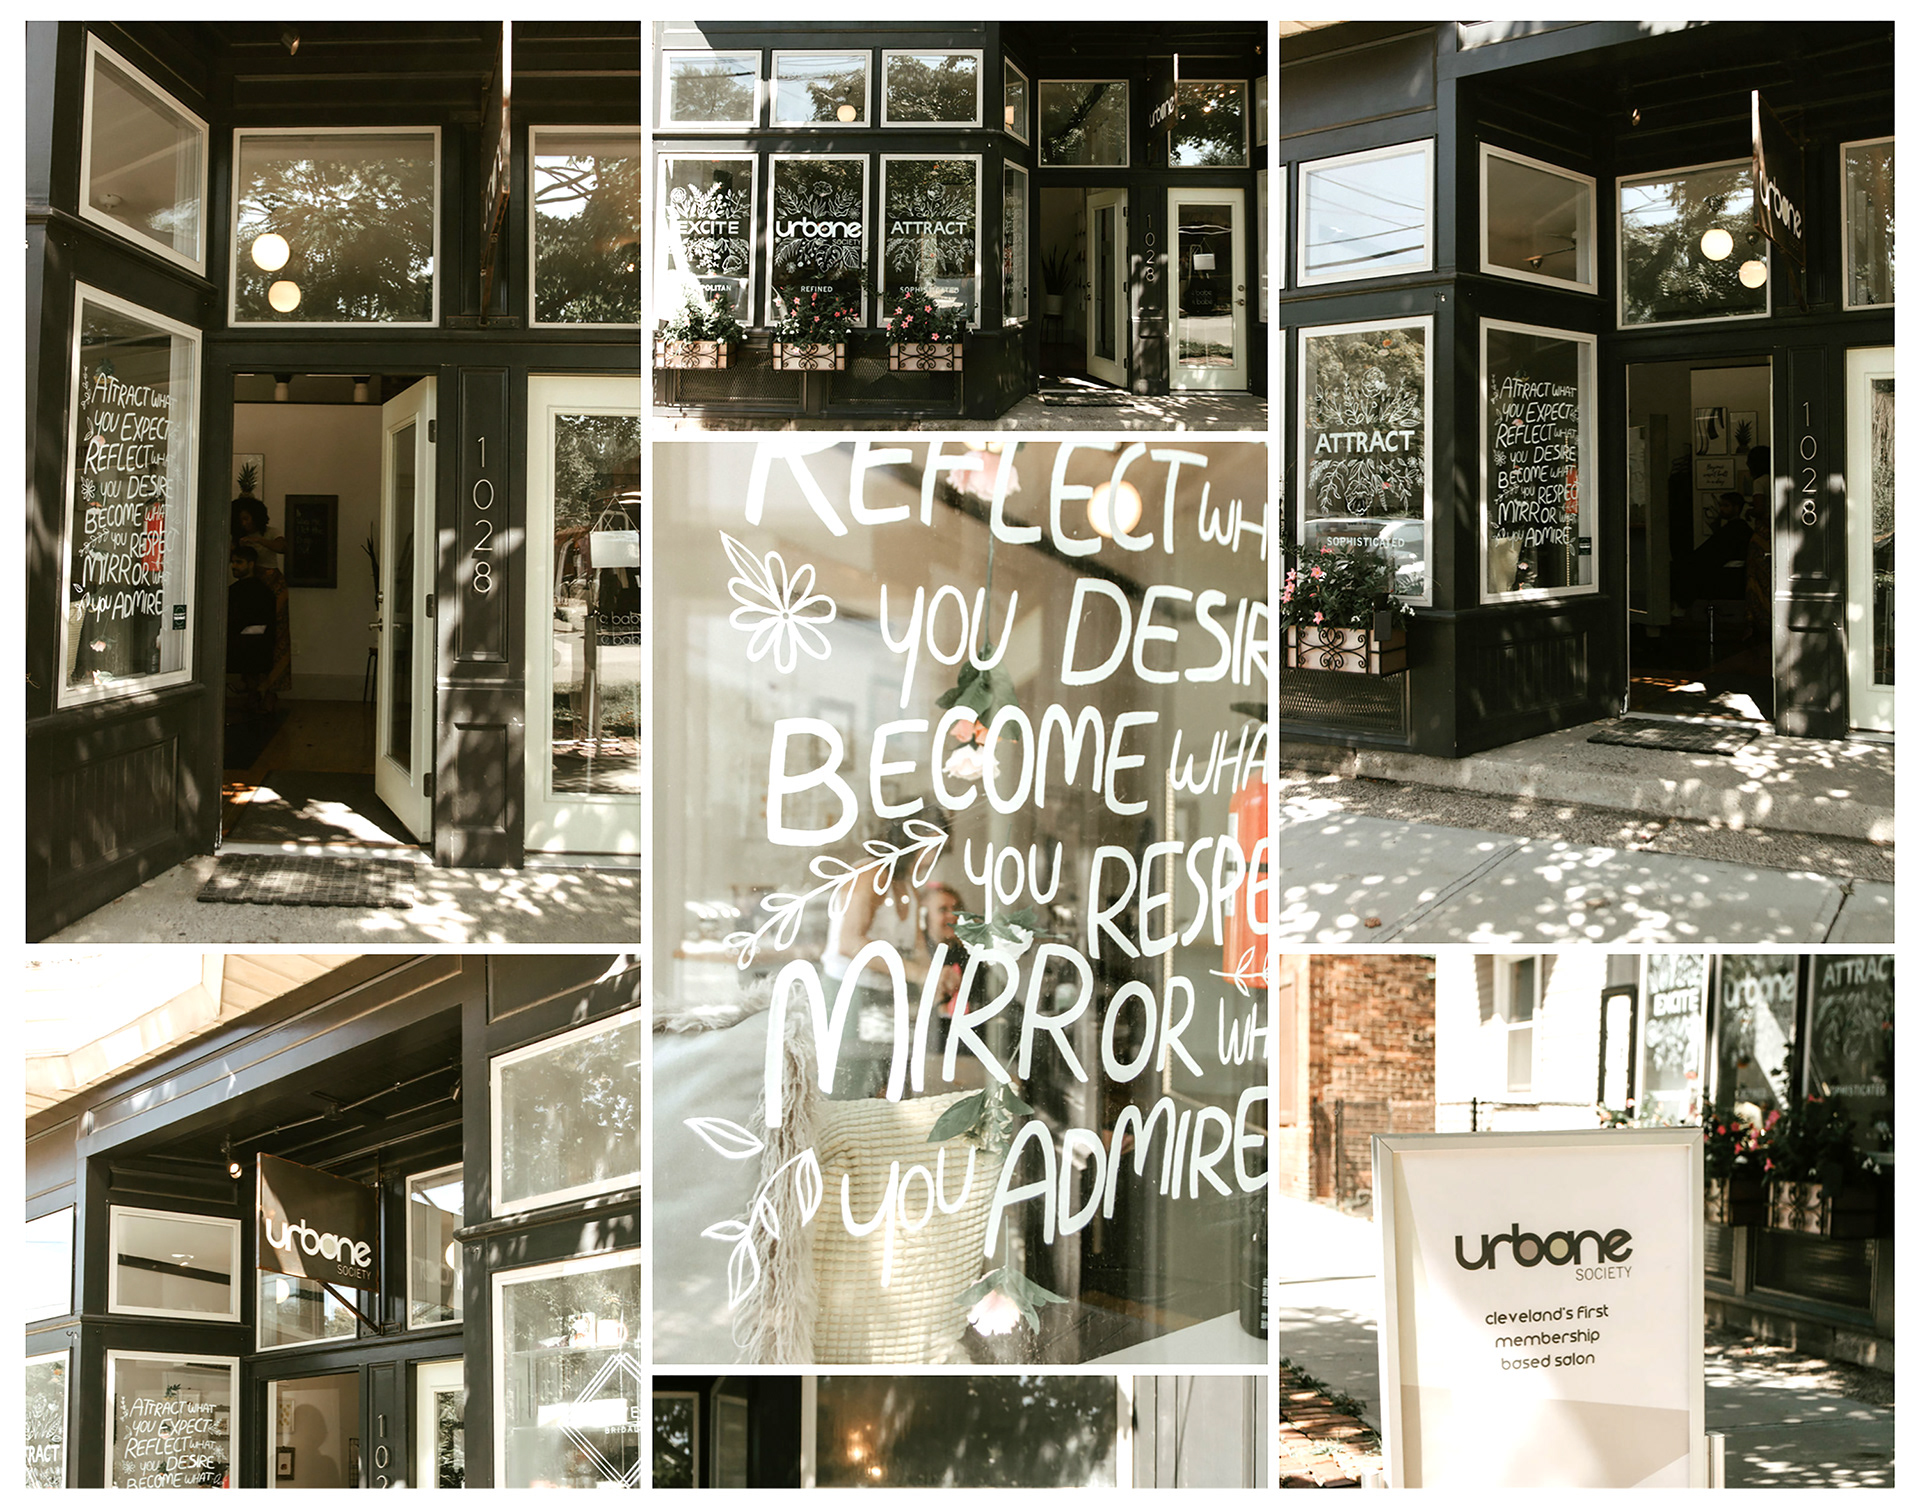 ATTRACT WHAT
YOU EXPECT
REFLECT WHAT
YOU DESIRE
BECOME WHAT
YOU RESPECT
MIRROR
YOU ADMIRE
1028
urbane
EXCITE
urbane
SOCIETY
ATTRACT
REFINED
SOPHISTICATED
1028
REFLECT
YOU DESIR
BECOME WHA
YOU RESPE
MIRROR WH
YOU ADMIRE
urbane
ATTRACT
SOPHISTICATED
ATTRACT WHAT
YOU EXPECT
REFLECT WHAT
YOU DESIRE
BECOME WHAT
YOU RESPEC
MIRROR
YOU ADMIRE
1028
urbane
SOCIETY
ATTRACT WHAT
YOU EXPECT
REFLECT WHAT
YOU DESIRE
BECOME WHAT
RACT
102
BRIDAL
EXCITE
urbane
ATTRACT
SOPHISTICATED
urbane
SOCIETY
cleveland's first
membership
based salon